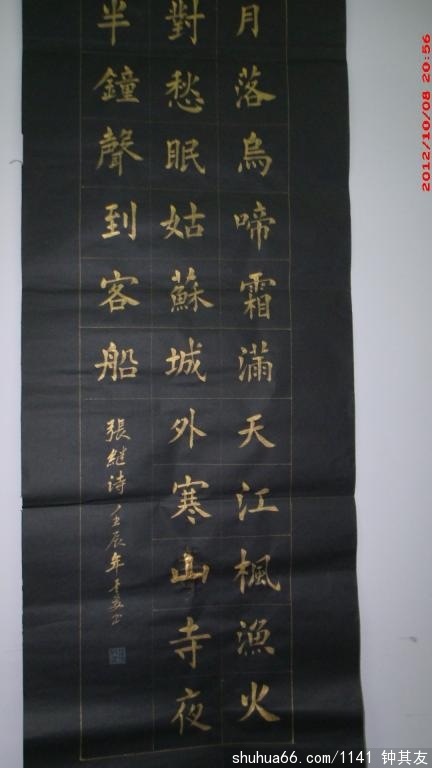 月落烏啼霜滿天江楓漁火
對愁眠姑蘇城外寒山寺夜
半鐘聲到客船
張継诗 壬辰年
2012/10/08 20:56
shuhua66.com/1141 钟其友